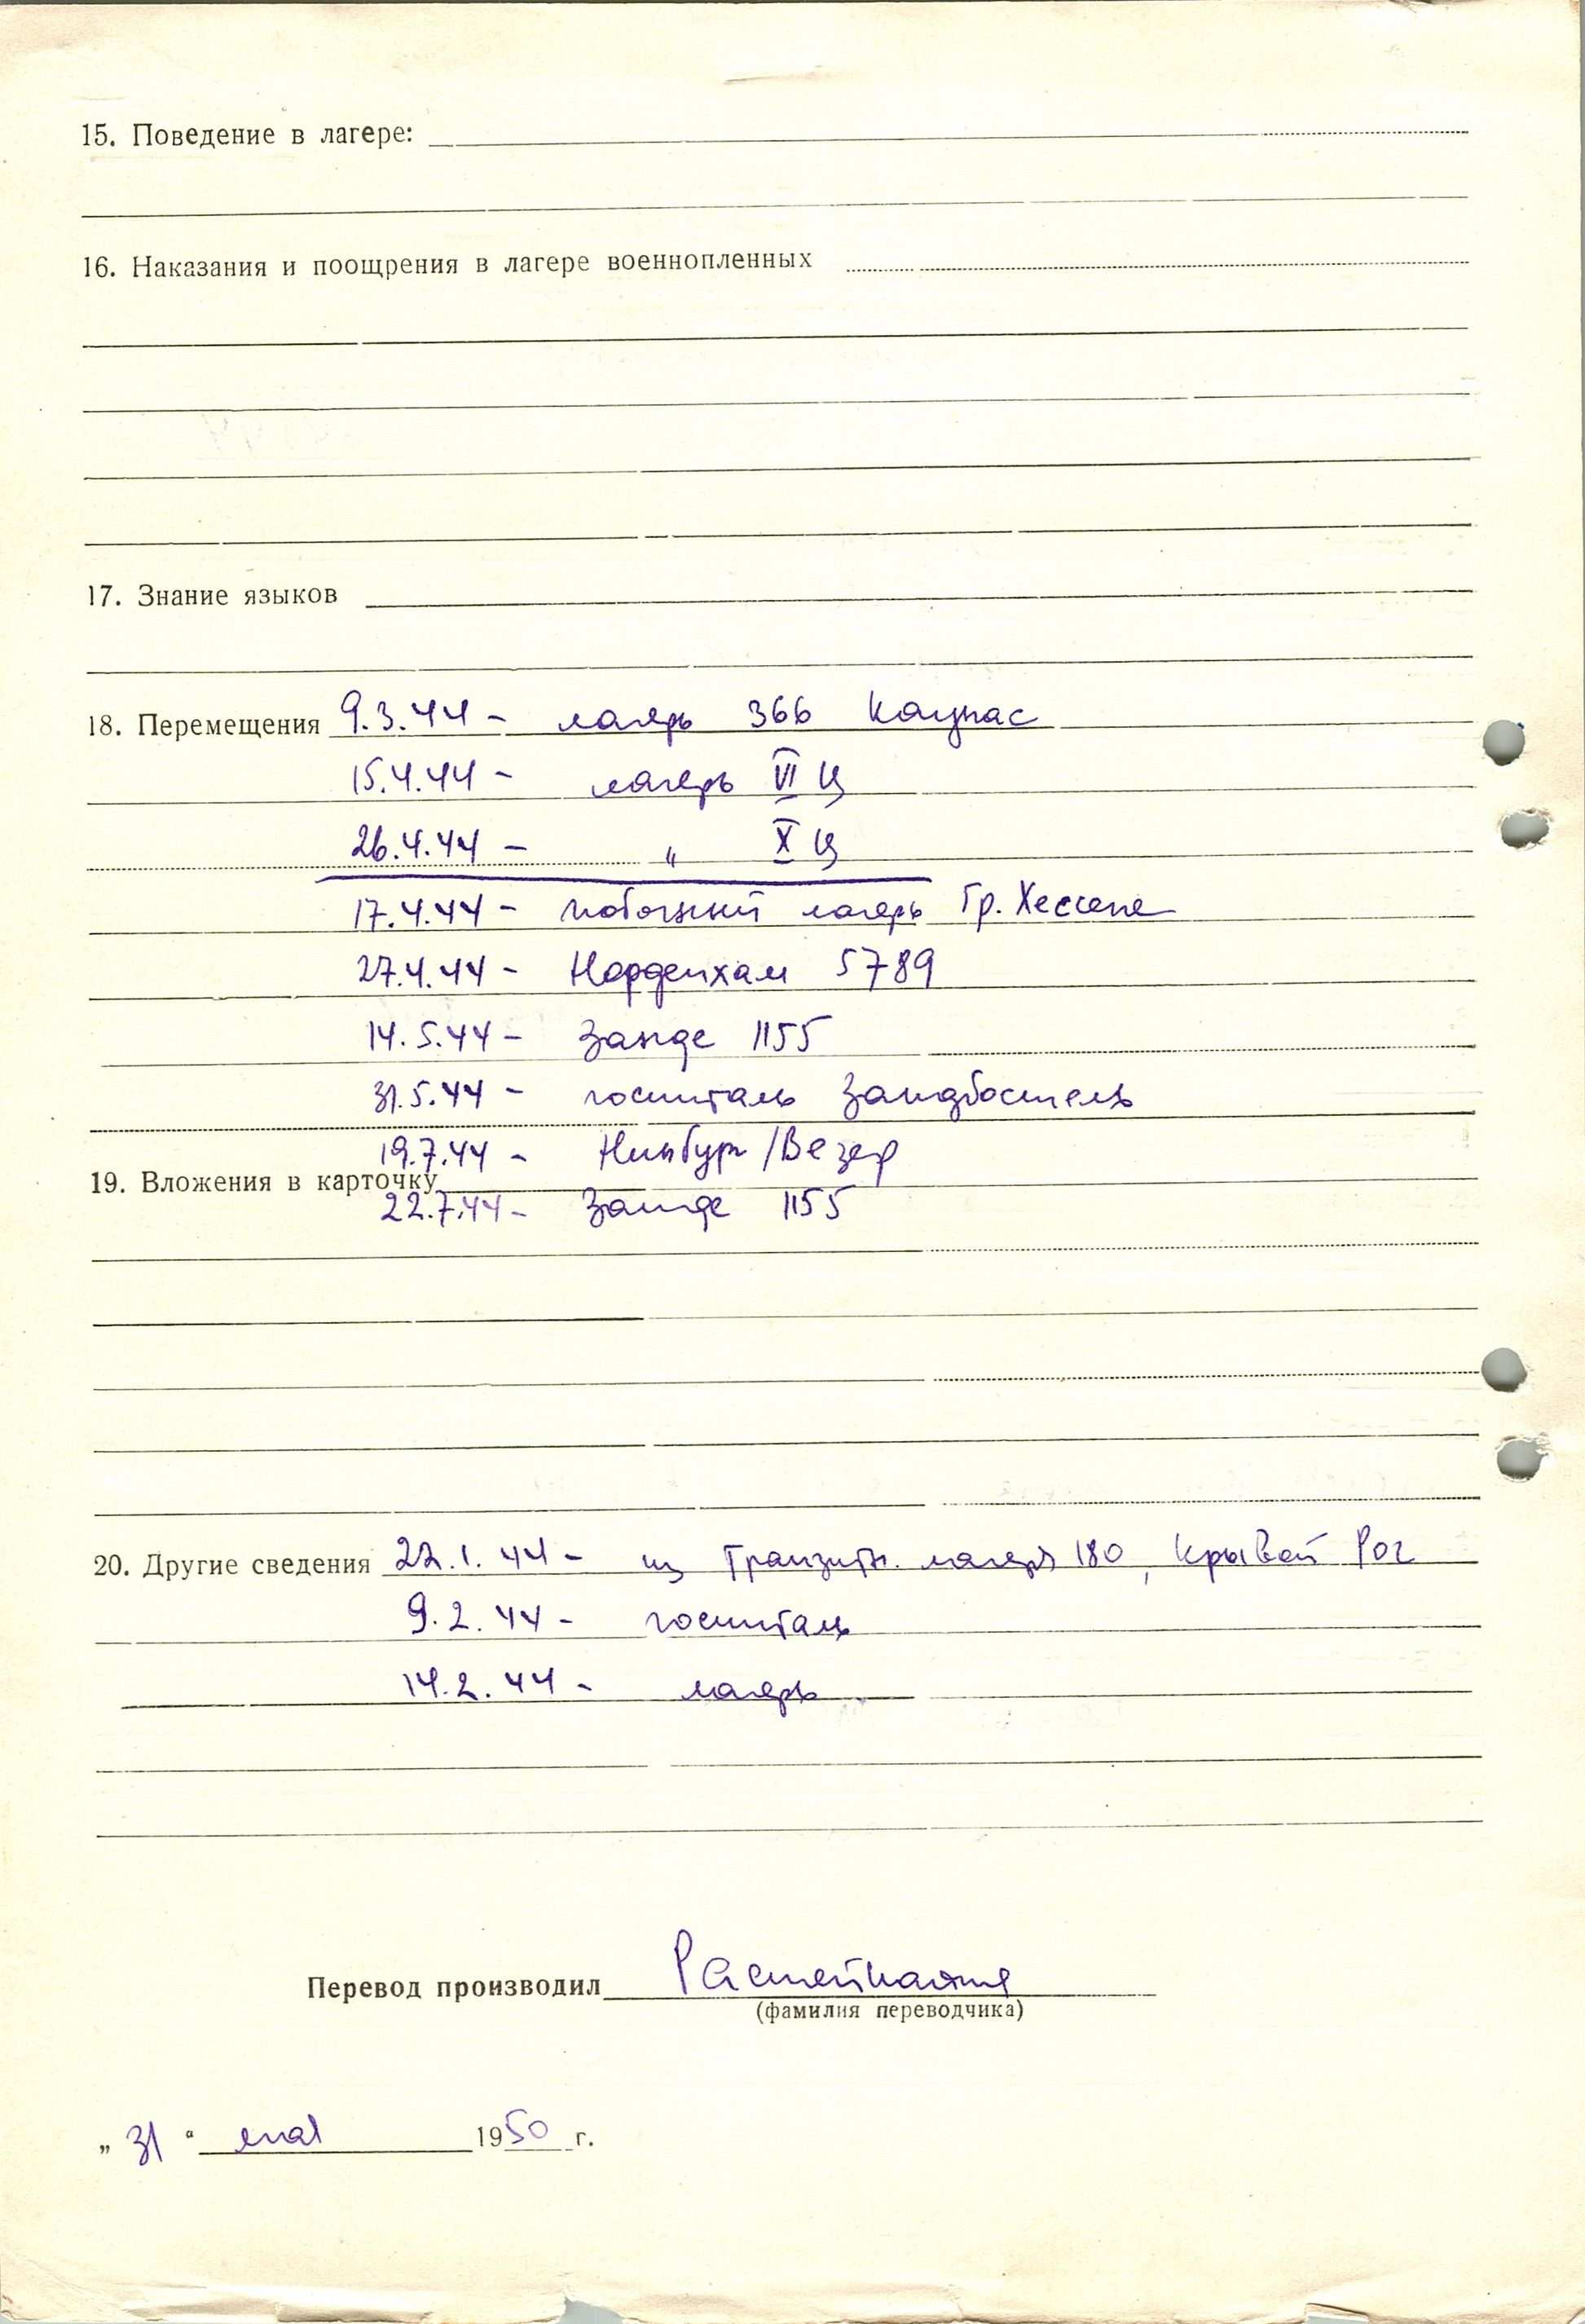 15. Поведение в лагере:
16. Наказания и поощрения в лагере военнопленных
17. Знание языков
18. Перемещения 9.3.44 – лагерь 366 Каунас
15.4.44 – лагерь VI Ц
26.4.44 – „ X Ц
17.4.44 – побочный лагерь Гр. Хессепе
27.4.44 – Норденхам 5789
14.5.44 – Занде 1155
31.5.44 – госпиталь Зандбостель
19.7.44 – Нинбург/Везер
19. Вложения в карточку
22.7.44 – Занде 1155
20. Другие сведения 22.1.44 – из Транзитн. лагеря 180, Кривой Рог
9.2.44 – госпиталь
14.2.44 – лагерь
Перевод производил
(фамилия переводчика)
„ 31 “ мая 1950 г.